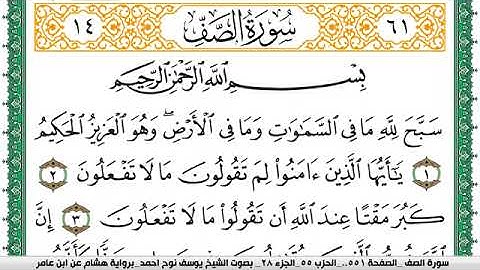 ٦١ سُورَةُ الصَّفِّ ١٤
بِسْمِ اللَّهِ الرَّحْمَٰنِ الرَّحِيمِ
سَبَّحَ لِلَّهِ مَا فِي السَّمَاوَاتِ وَمَا فِي الْأَرْضِ ۖ وَهُوَ الْعَزِيزُ الْحَكِيمُ
١ يَا أَيُّهَا الَّذِينَ ءَامَنُوا لِمَ تَقُولُونَ مَا لَا تَفْعَلُونَ ٢
كَبُرَ مَقْتًا عِندَ اللَّهِ أَن تَقُولُوا مَا لَا تَفْعَلُونَ ٣ إِنَّ
سورة الصف _الصفحة ٥٥١ .. الحزب ٥٥ _الجزء ٢٨_ بصوت الشيخ يوسف نوح احمد_برواية هشام عن ابن عامر